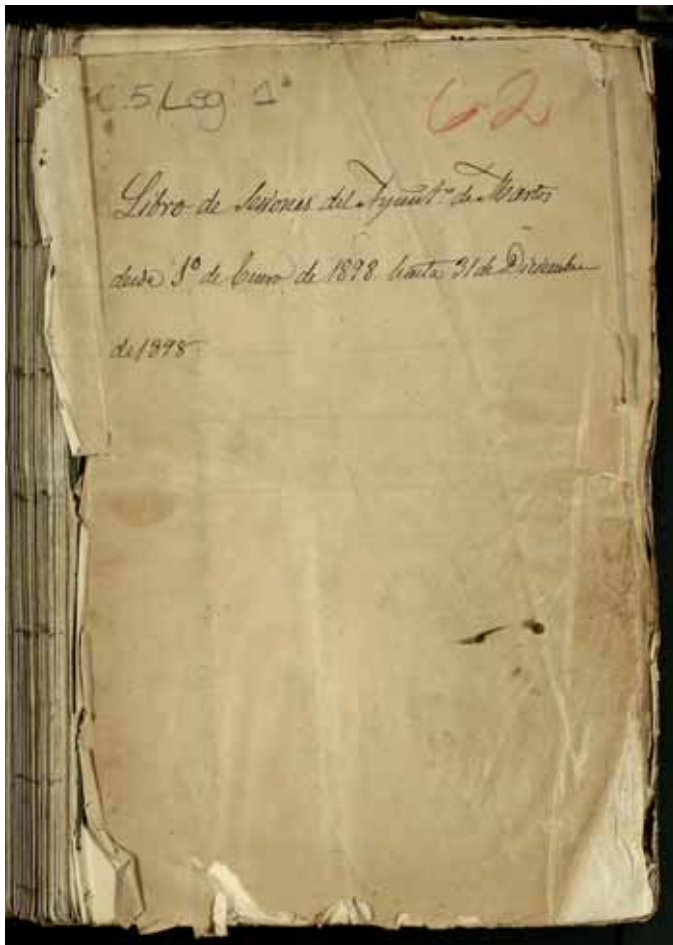 C.5/Leg 1º
62
Libro de Sesiones del Ayuntº de Martos
desde 1º de Enero de 1898 hasta 31 de Diciembre
de 1898